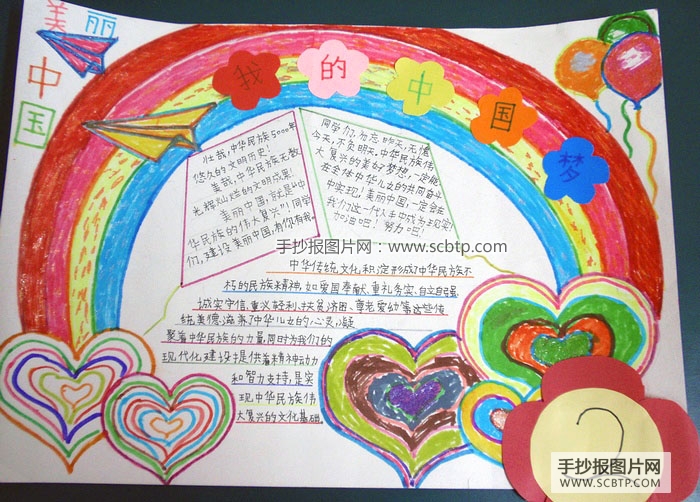 美丽
中
国
我的中国梦
壮哉,中华民族5000年
悠久的文明历史!
美哉,中华民族无数
光辉灿烂的文明成果!
美丽中国,就是"中
华民族的伟大复兴"!同学
们,建设美丽中国,有你有我。
同学们,勿忘昨天,无愧
今天,不负明天,中华民族伟
大复兴的美好梦想,一定能
在全体中华儿女的共同奋斗
中实现!美丽中国,一定会在
我们这一代人手中成为现实!
加油吧!努力吧!
手抄报图片网:www.scbtp.com
中华传统文化,积淀形成了中华民族不
朽的民族精神,如爱国奉献、重礼务实、自立自强、
诚实守信、重义轻利、扶贫济困、尊老爱幼等这些传
统美德,滋养了中华儿女的心灵,凝
聚着中华民族的力量,同时为我们的
现代化建设提供着精神动力
和智力支持,是实
现中华民族伟
大复兴的文化基础。
手抄报图片网
WWW.SCBTP.COM